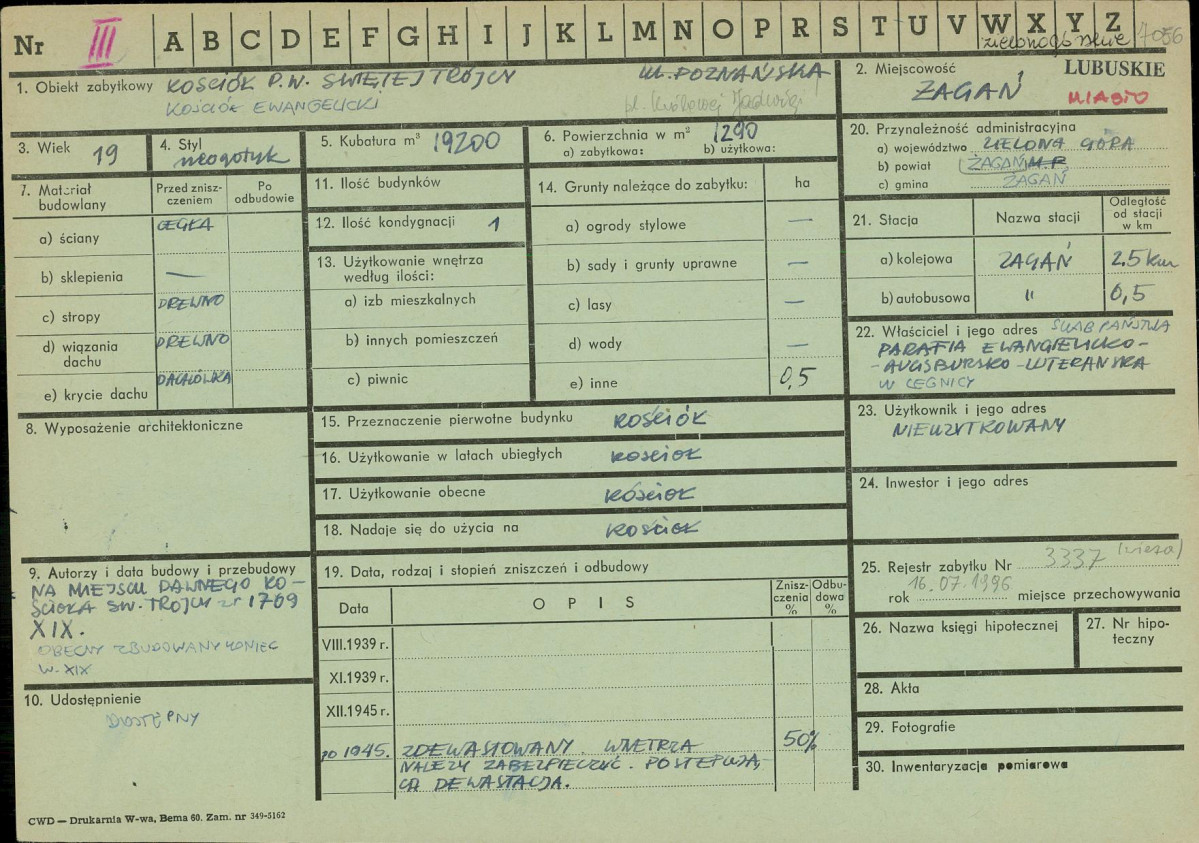 Nr III A B C D E F G H I J K L M N O P R S T U V W X Y Z
zielonogórskie 7056
1. Obiekt zabytkowy KOŚCIÓŁ P.W. ŚWIĘTEJ TRÓJCY UL. POZNAŃSKA
KOŚCIÓŁ EWANGELICKI pl. Królowej Jadwigi
2. Miejscowość LUBUSKIE
ŻAGAŃ MIASTO
3. Wiek 19
4. Styl neogotyk
5. Kubatura m³ 19200
6. Powierzchnia w m² 1290
a) zabytkowa: b) użytkowa:
7. Materiał budowlany
Przed zniszczeniem
Po odbudowie
a) ściany CEGŁA
b) sklepienia —
c) stropy DREWNO
d) wiązania dachu DREWNO
e) krycie dachu DACHÓWKA
8. Wyposażenie architektoniczne
9. Autorzy i data budowy i przebudowy
NA MIEJSCU DAWNEGO KO-
ŚCIOŁA ŚW. TRÓJCY Z 1709
XIX.
OBECNY ZBUDOWANY KONIEC
W. XIX
10. Udostępnienie
DOSTĘPNY
11. Ilość budynków
12. Ilość kondygnacji 1
13. Użytkowanie wnętrza
według ilości:
a) izb mieszkalnych
b) innych pomieszczeń
c) piwnic
14. Grunty należące do zabytku: ha
a) ogrody stylowe —
b) sady i grunty uprawne —
c) lasy —
d) wody —
e) inne 0,5
15. Przeznaczenie pierwotne budynku KOŚCIÓŁ
16. Użytkowanie w latach ubiegłych KOŚCIOŁ
17. Użytkowanie obecne KOŚCIOŁ
18. Nadaje się do użycia na KOŚCIOŁ
19. Data, rodzaj i stopień zniszczeń i odbudowy
Data
OPIS
Zniszczenia %
Odbudowa %
VIII.1939 r.
XI.1939 r.
XII.1945 r.
po 1945. ZDEWASTOWANY. WNĘTRZA 50%
NALEŻY ZABEZPIECZYĆ. POSTĘPUJĄ-
CA DEWASTACJA.
20. Przynależność administracyjna
a) województwo ZIELONA GÓRA
b) powiat ŻAGAŃ M.P.
c) gmina ŻAGAŃ
21. Stacja
Nazwa stacji
Odległość od stacji w km
a) kolejowa ŻAGAŃ 2,5 km
b) autobusowa " 0,5
22. Właściciel i jego adres SKARB PAŃSTWA
PARAFIA EWANGIELICKO-
-AUGSBURSKO-LUTERAŃSKA
W LEGNICY
23. Użytkownik i jego adres
NIEUŻYTKOWANY
24. Inwestor i jego adres
25. Rejestr zabytku Nr 3337 (wieża)
rok 16.07.1996 miejsce przechowywania
26. Nazwa księgi hipotecznej
27. Nr hipoteczny
28. Akta
29. Fotografie
30. Inwentaryzacja pomiarowa
CWD — Drukarnia W-wa, Bema 60. Zam. nr 349-5162